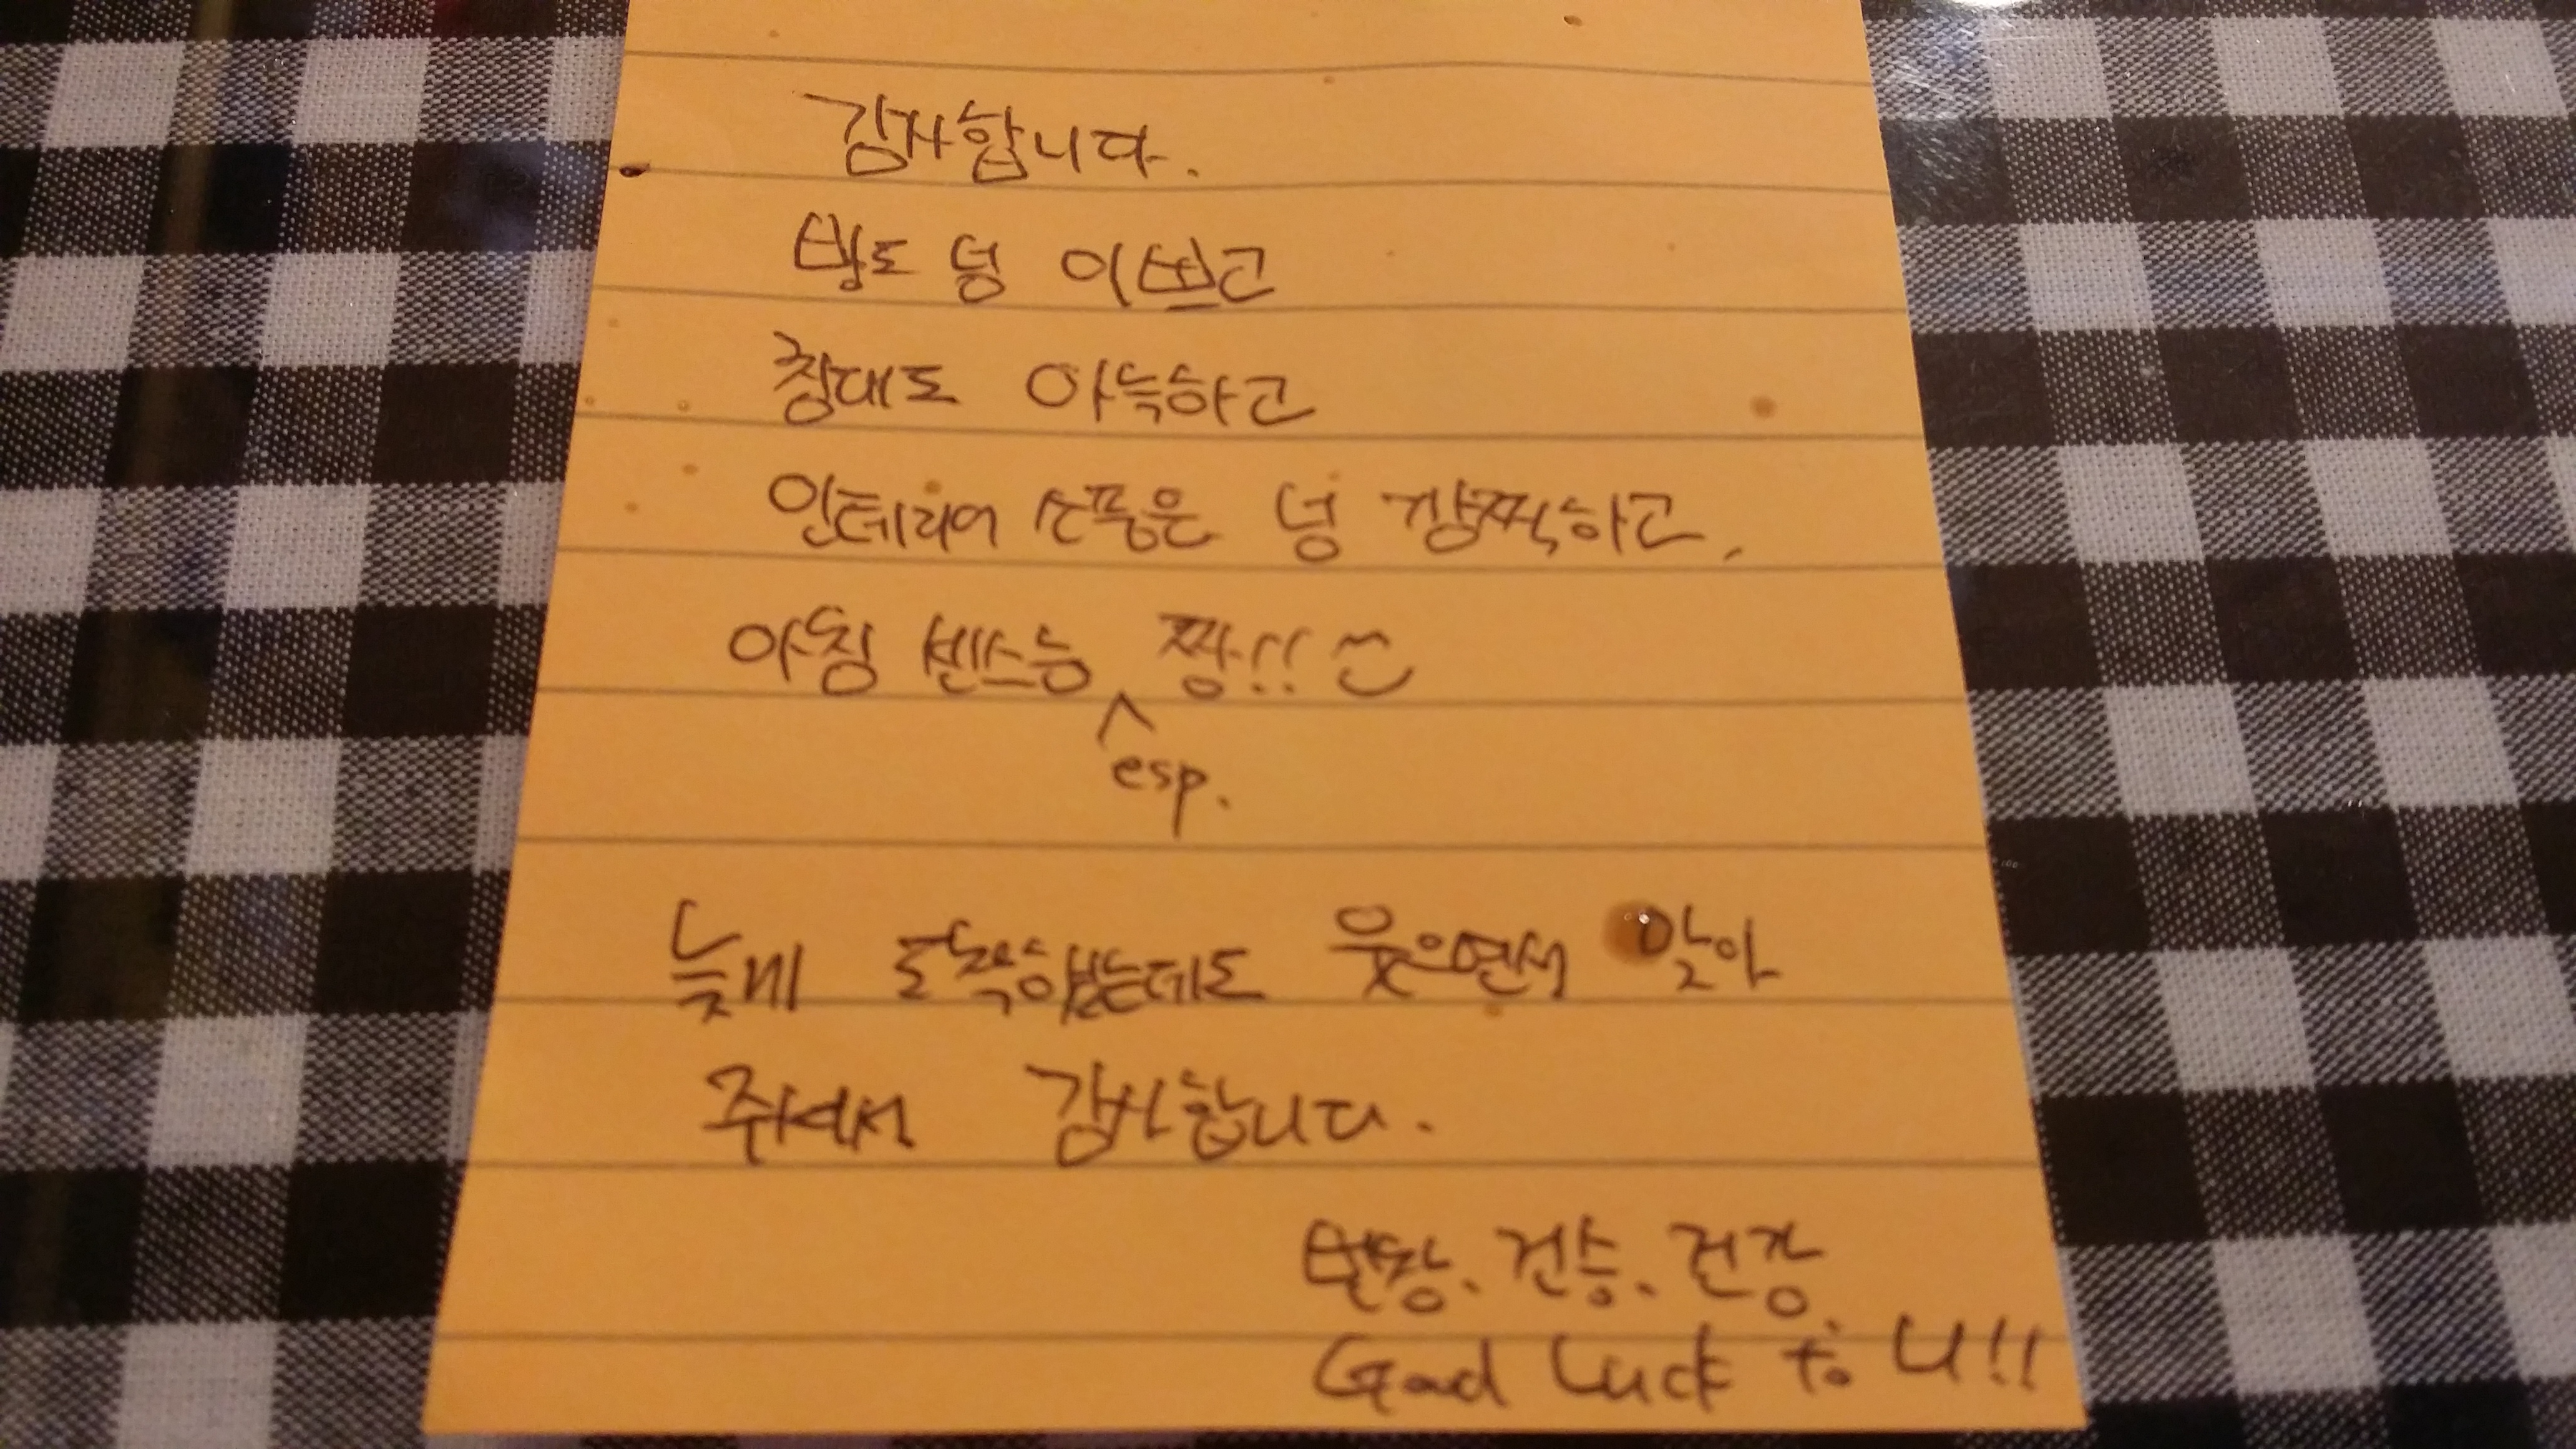 감사합니다.
방도 넝 이쁘고
침대도 아늑하고
인테리어 소품은 넝 깜찍하고,
아침 센스는 짱!!
esp.
늦게 도착했는데도 웃으면서 맞아
주셔서 감사합니다.
번창. 건승. 건강.
Good Luck to U!!